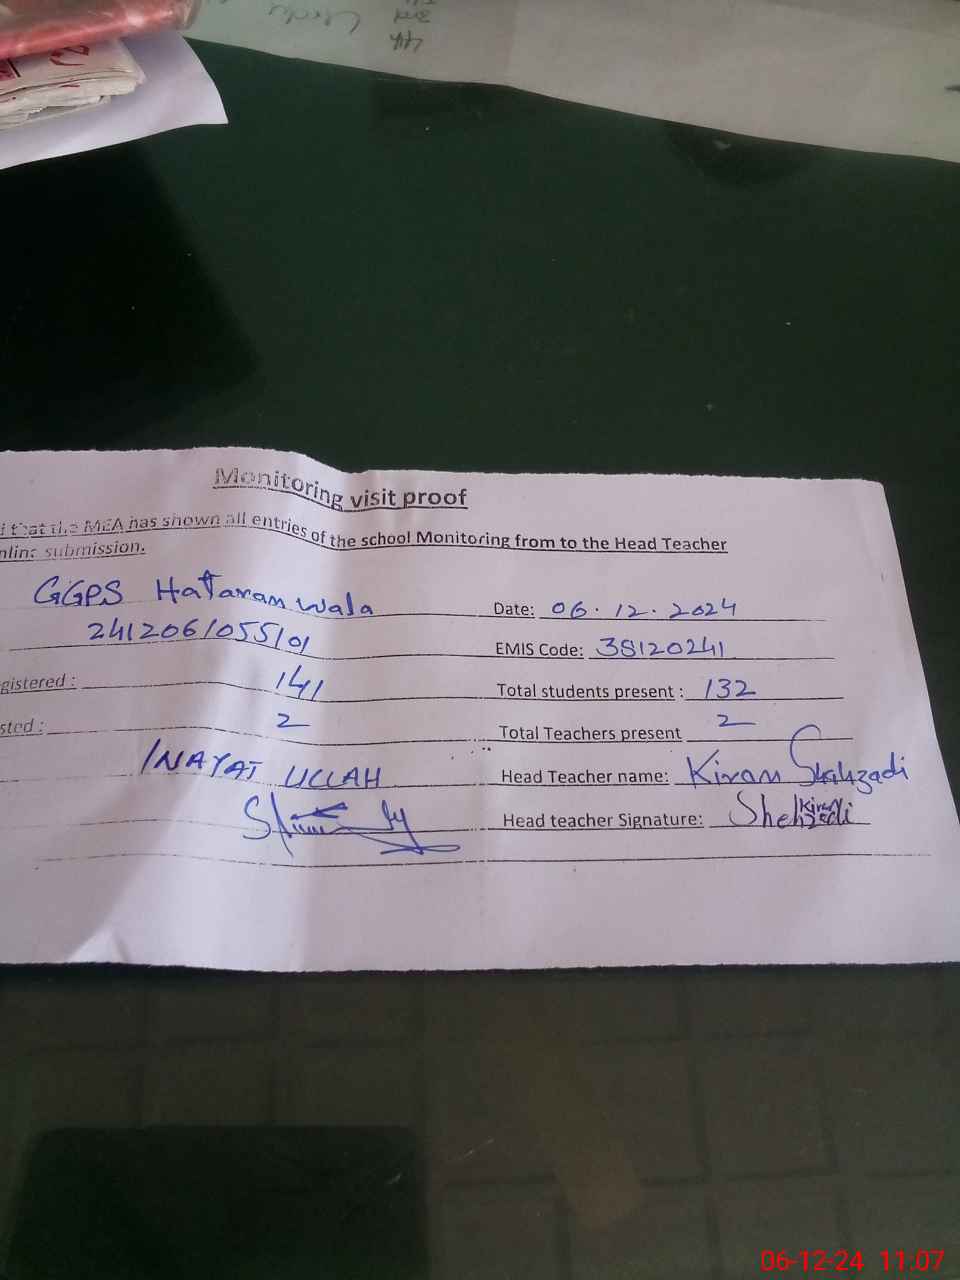 3rd
4th
Monitoring visit proof
that the MEA has shown all entries of the school Monitoring from to the Head Teacher
submission.
GGPS Hataran wala Date: 06.12.2024
2412061055101 EMIS Code: 38120241
gistered : 141 Total students present : 132
sted : 2 Total Teachers present 2
INAYAT ULLAH Head Teacher name: Kiran Shahzadi
Head teacher Signature: Kiran Shehzadi
06-12-24 11:07